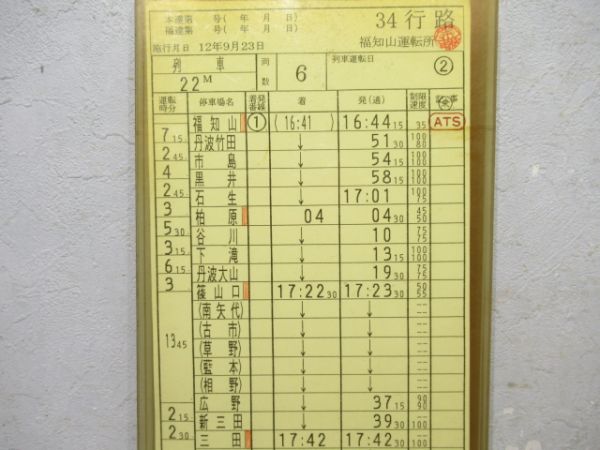 本運第 号( 年 月 日)
福達第 号( 年 月 日)
34行路
施行月日 12年9月23日
福知山運転所
列車 両数 6 列車運転日 ②
22M
運転時分 停車場名 着発番線 着 発(通) 制限速度 記事
福知山 ① (16:41) 16:44 15 35 ATS
7 15
丹波竹田 ↓ 51 30 100 80
2 45
市島 ↓ 54 15 100 100
4
黒井 ↓ 58 15 100 100
2 45
石生 ↓ 17:01 100 75
3
柏原 04 04 30 45 50
5 30
谷川 ↓ 10 75 75
3 15
下滝 ↓ 13 15 100 100
6 15
丹波大山 ↓ 19 30 75 75
3
篠山口 17:22 30 17:23 30 50 55
(南矢代) ↓ ↓ --
(古市) ↓ ↓ --
13 45
(草野) ↓ ↓ --
(藍本) ↓ ↓ --
(相野) ↓ ↓ --
広野 ↓ 37 15 90 90
2 15
新三田 ↓ 39 30 -- 100
2 30
三田 17:42 17:42 30 -- 100